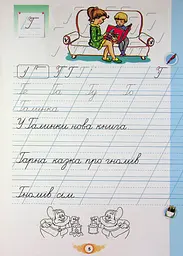 Г
Г Г Г Г
Га Гу Го
Галинка
У Галинки нова книга.
Гарна казка про гномів.
Гномів сім.